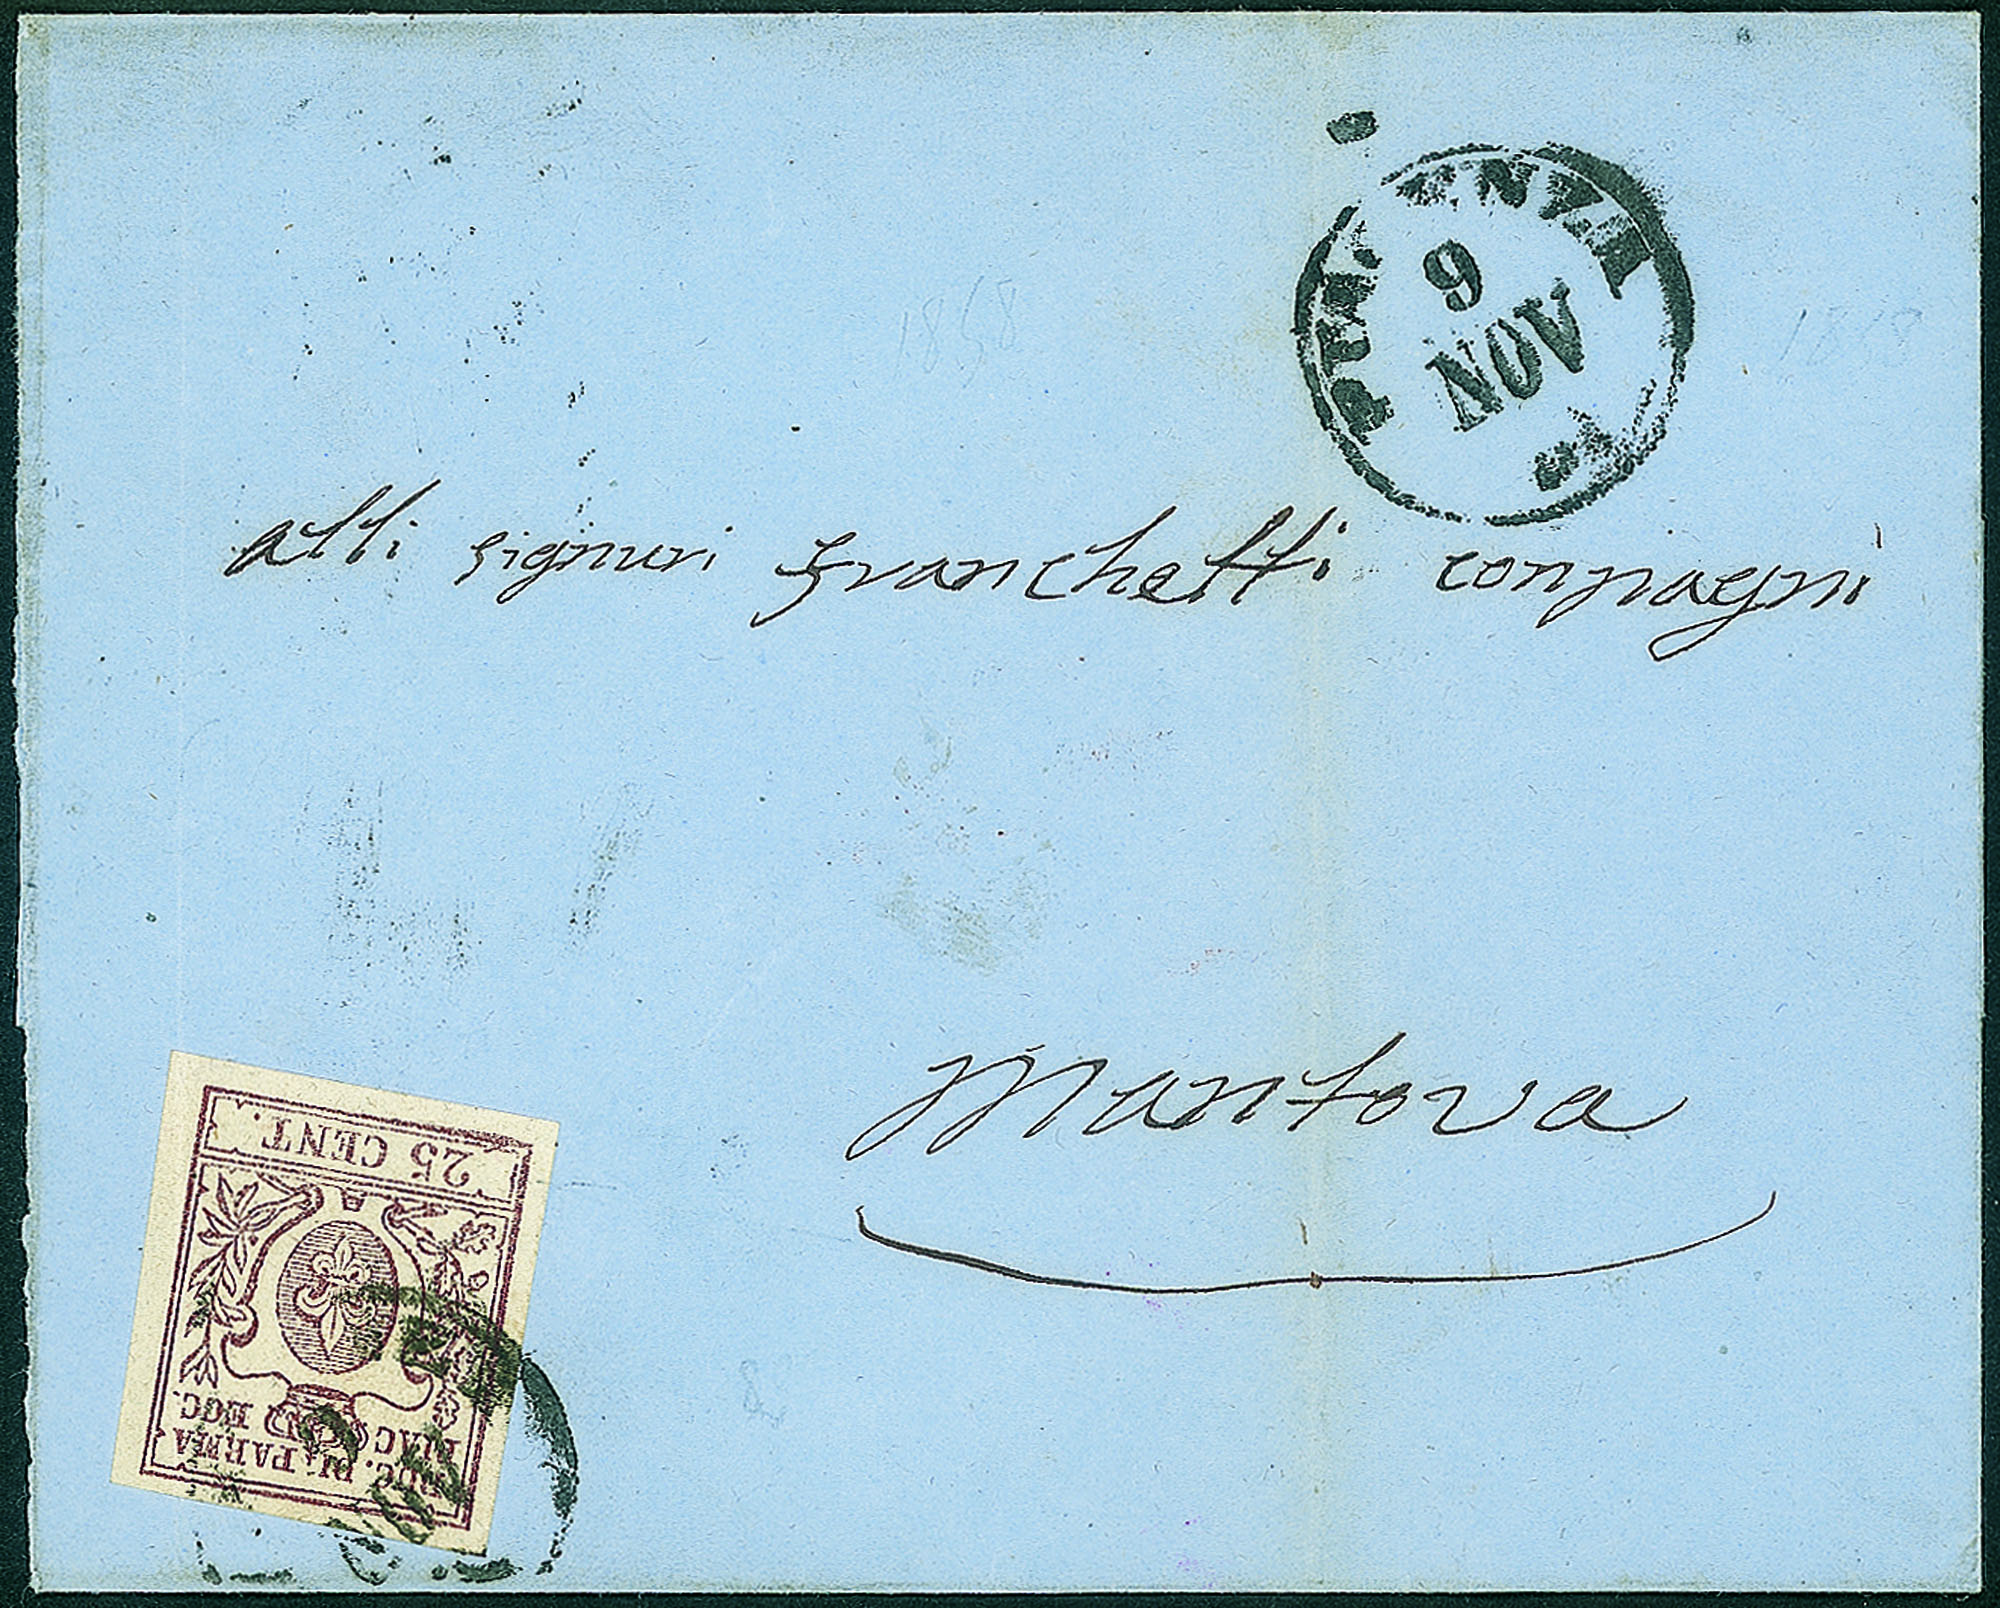 PIACENZA
9
NOV
1858
1858
alli signuri Franchetti conpagni
Mantova
25 CENT.
DUC. DI PARMA
PIAC. ECC.